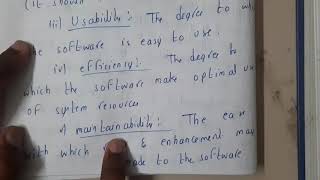 (it should
iii) Usability :- The degree to wh
the software is easy to use.
iv) efficiency :- The degree to
which the software make optimal us
of system resources
v) maintainability :- The eas
with which & enhancement may
made to the software